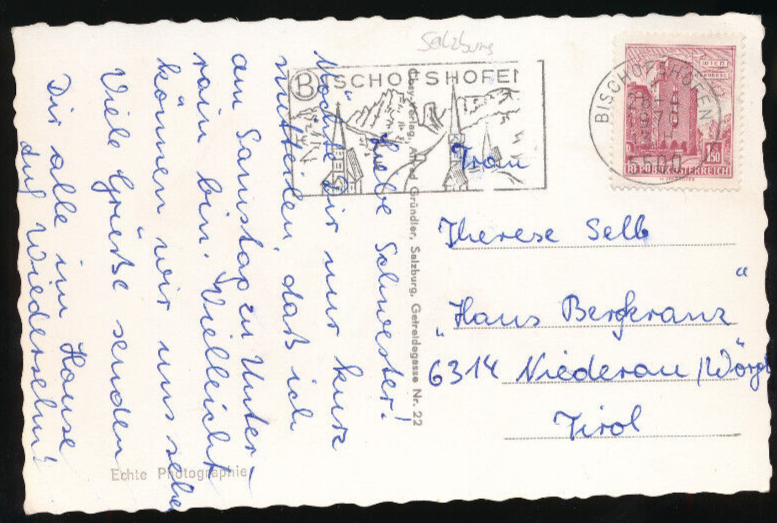 Salzburg
BISCHOFSHOFEN
BISCHOFSHOFEN
5500
WIEN
1.50
REPUBLIK ÖSTERREICH
Liebe Schwester!
Möchte Dir nur kurz
mitteilen, daß ich
am Samstag zu Unter-
rain bin. Vielleicht
können wir uns sehen
Viele Grüße senden
Dir alle im Hause
auf Wiedersehn!
Cosy-Verlag, Alfred Gründler, Salzburg, Getreidegasse Nr. 22
Frau
Therese Selb
„Haus Bergkranz"
6314 Niederau/Wörgl
Tirol
Echte Photographie